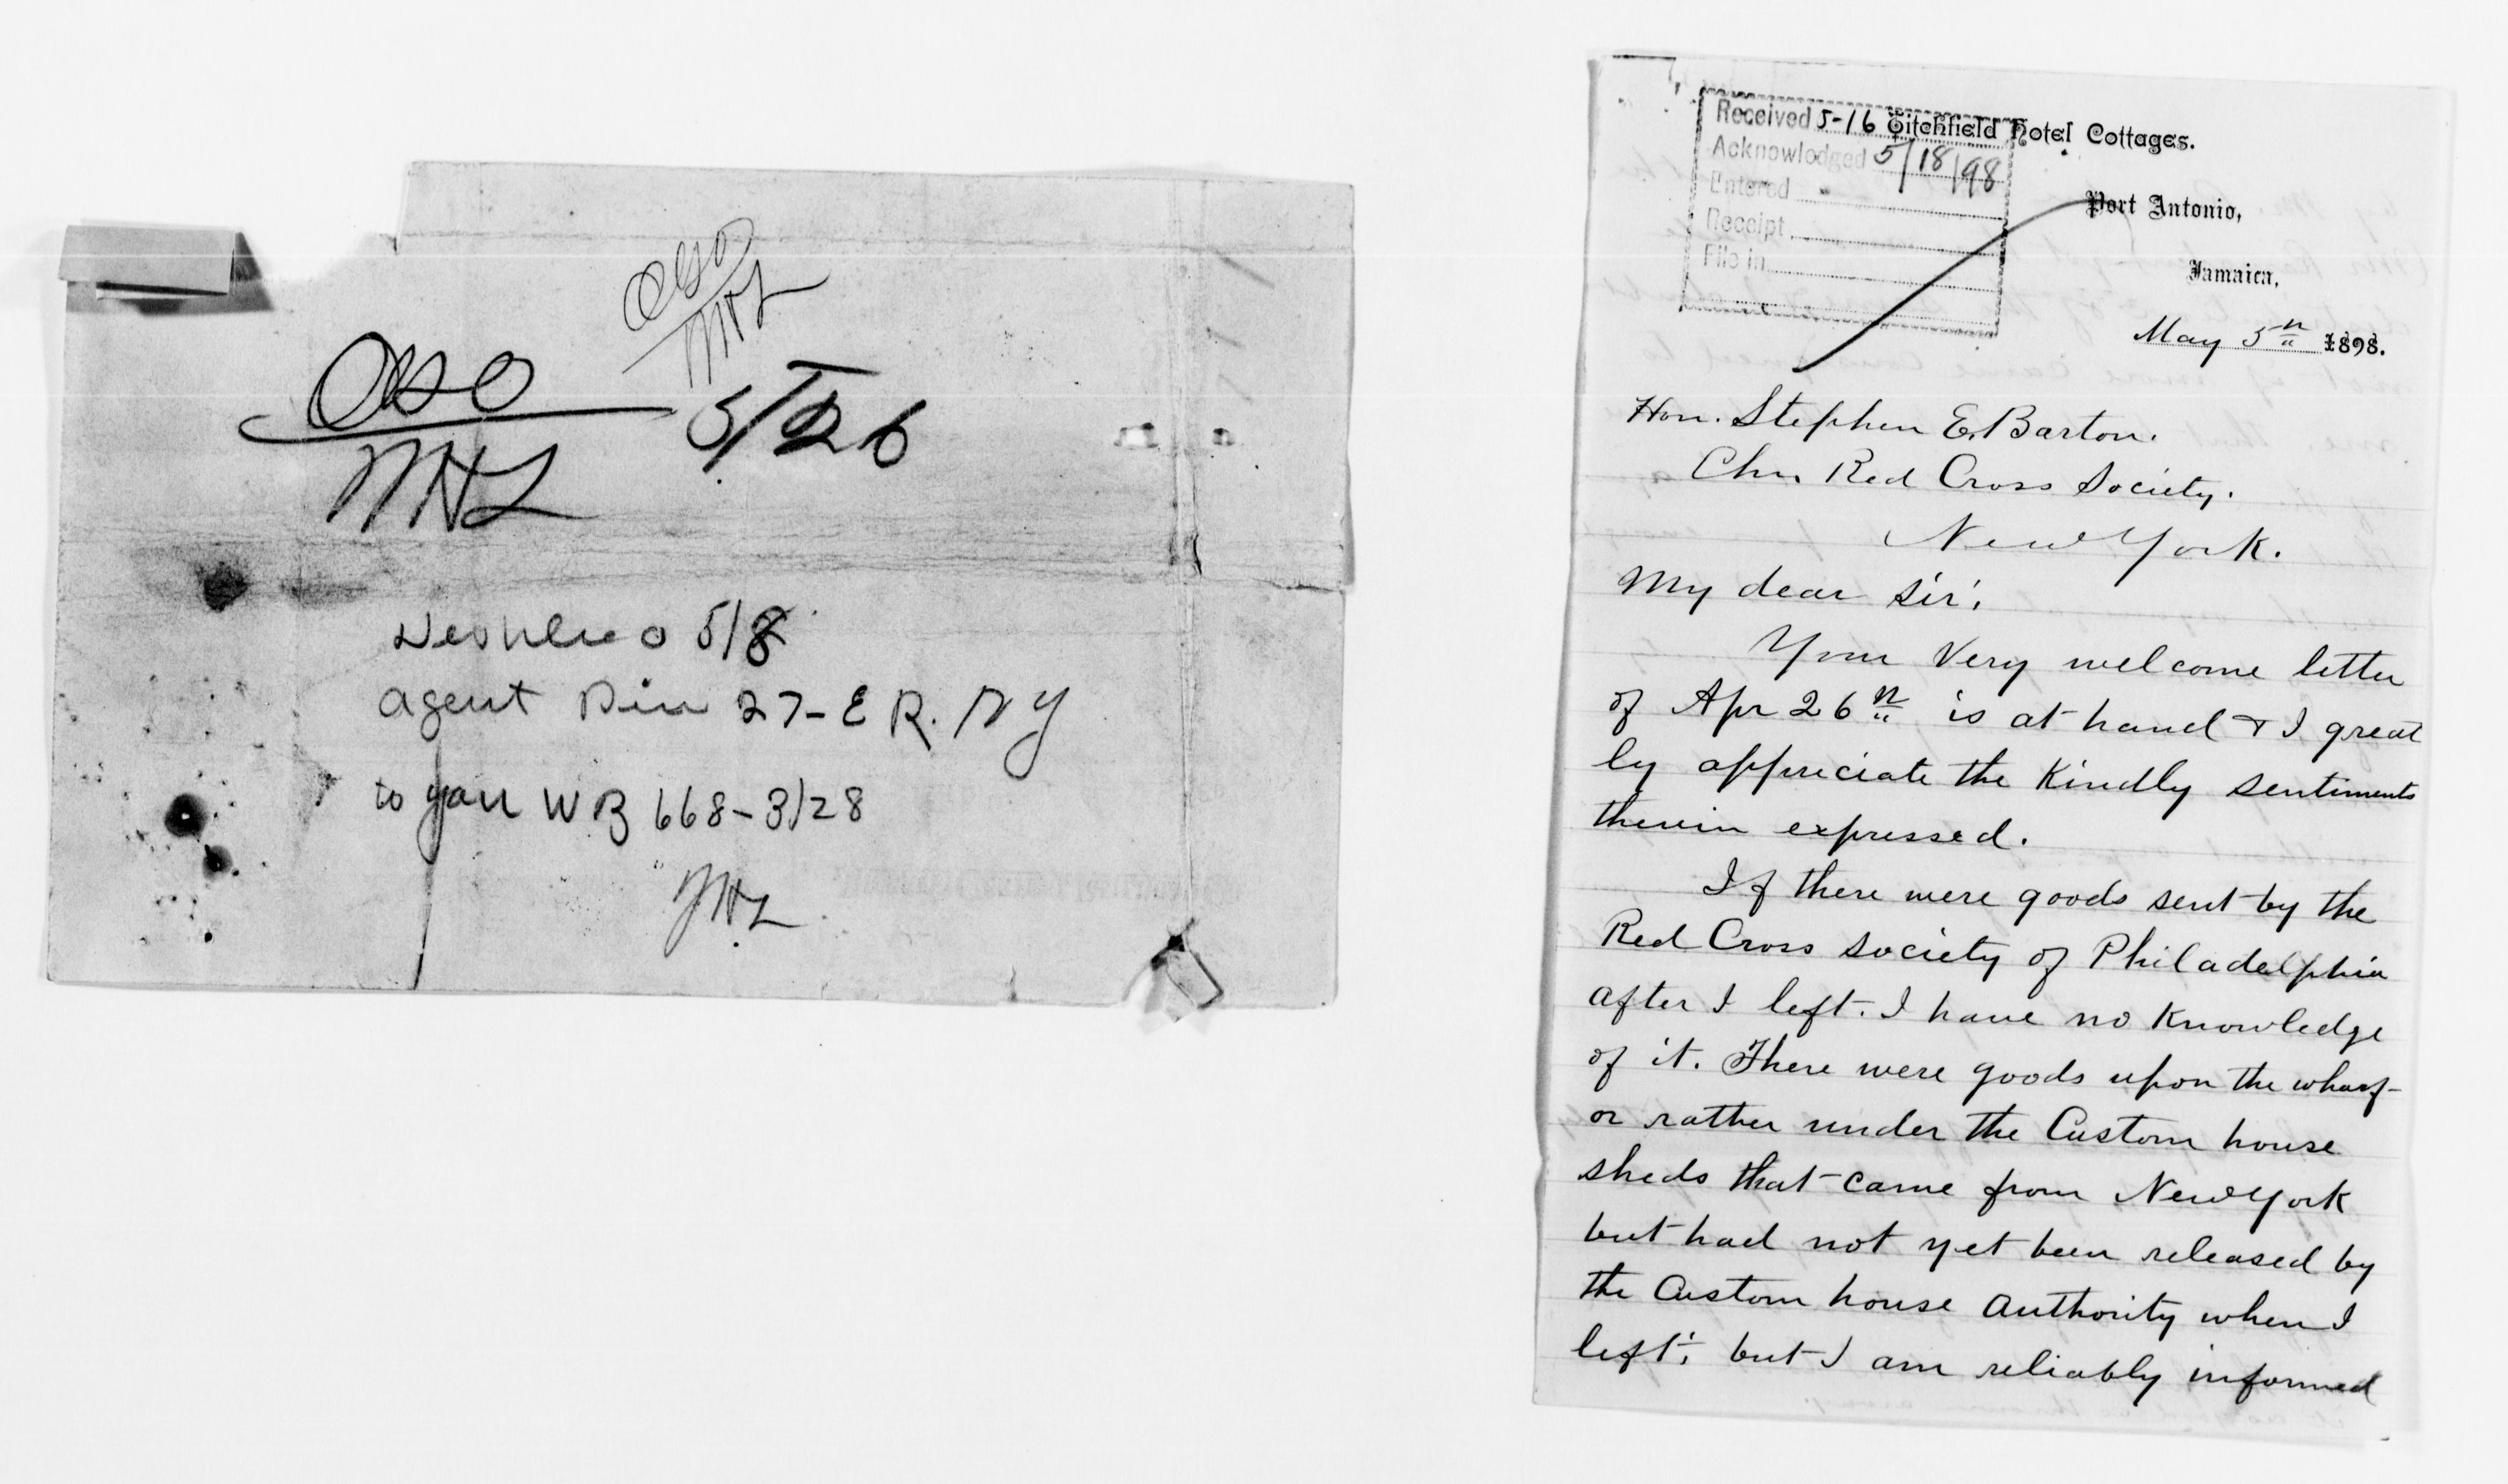 OSO
MHL
OSO
MHL
5/26
5/8
agent Pier 27-E R. NY
to your WB 668-3/28
MHL
Received 5-16
Acknowledged 5/18/98
Entered
Receipt
File in
Titchfield Hotel Cottages.
Port Antonio,
Jamaica,
May 5th 1898.
Hon. Stephen E. Barton.
Chn. Red Cross Society.
New York.
My dear Sir;
Your Very welcome letter
of Apr 26th is at hand & I great
ly appreciate the Kindly sentiments
therein expressed.
If there were goods sent by the
Red Cross society of Philadelphia
after I left. I have no Knowledge
of it. There were goods upon the wharf
or rather under the Custom house
sheds that came from New York
but had not yet been released by
the Custom house Authority when I
left; but I am reliably informed